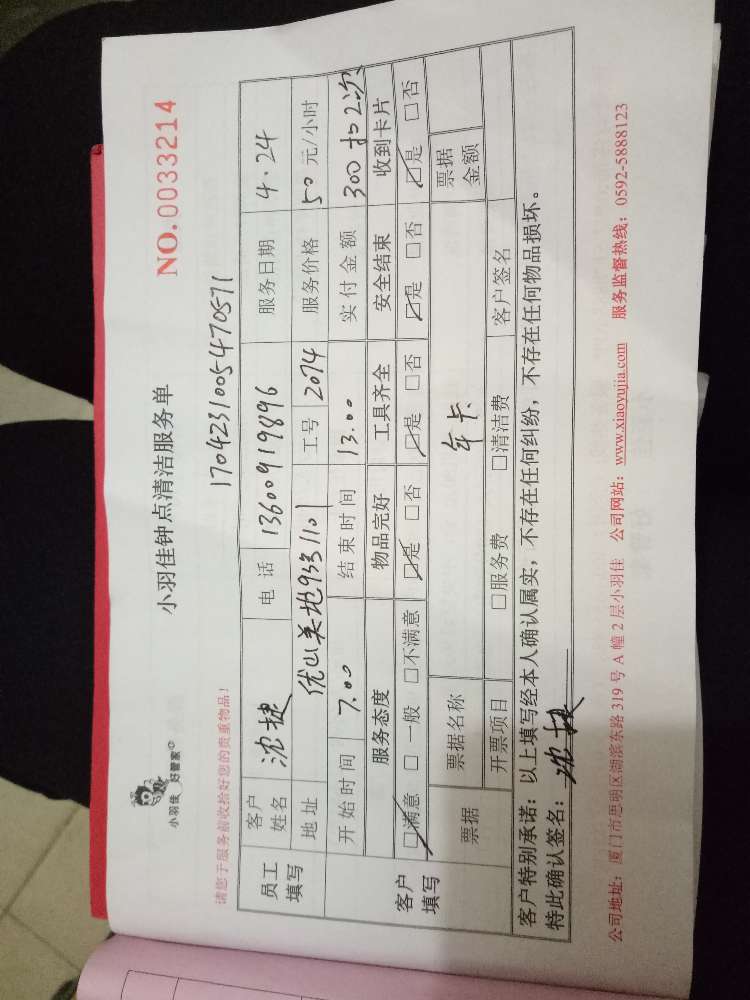 小羽佳 好管家
小羽佳钟点清洁服务单
NO. 0033214
请您于服务前收拾好您的贵重物品!
1704231005470571
员工填写 客户姓名 沈捷 电话 13600919896 服务日期 4.24
地址 优山美地9331101 工号 2074 服务价格 50元/小时
开始时间 7.00 结束时间 13.00 实付金额 300扣2次
客户填写 服务态度 物品完好 工具齐全 安全结束 收到卡片
☑满意 □一般 □不满意 ☑是 □否 ☑是 □否 ☑是 □否 ☑是 □否
票据 票据名称 年卡 票据金额
开票项目 □服务费 □清洁费 客户签名
客户特别承诺:以上填写经本人确认属实,不存在任何纠纷,不存在任何物品损坏。
特此确认签名:沈捷
公司地址:厦门市思明区湖滨东路319号A幢2层小羽佳 公司网站:www.xiaoyujia.com 服务监督热线:0592-5888123